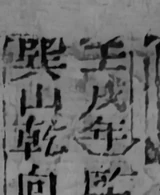 壬戌年
巽山乾向